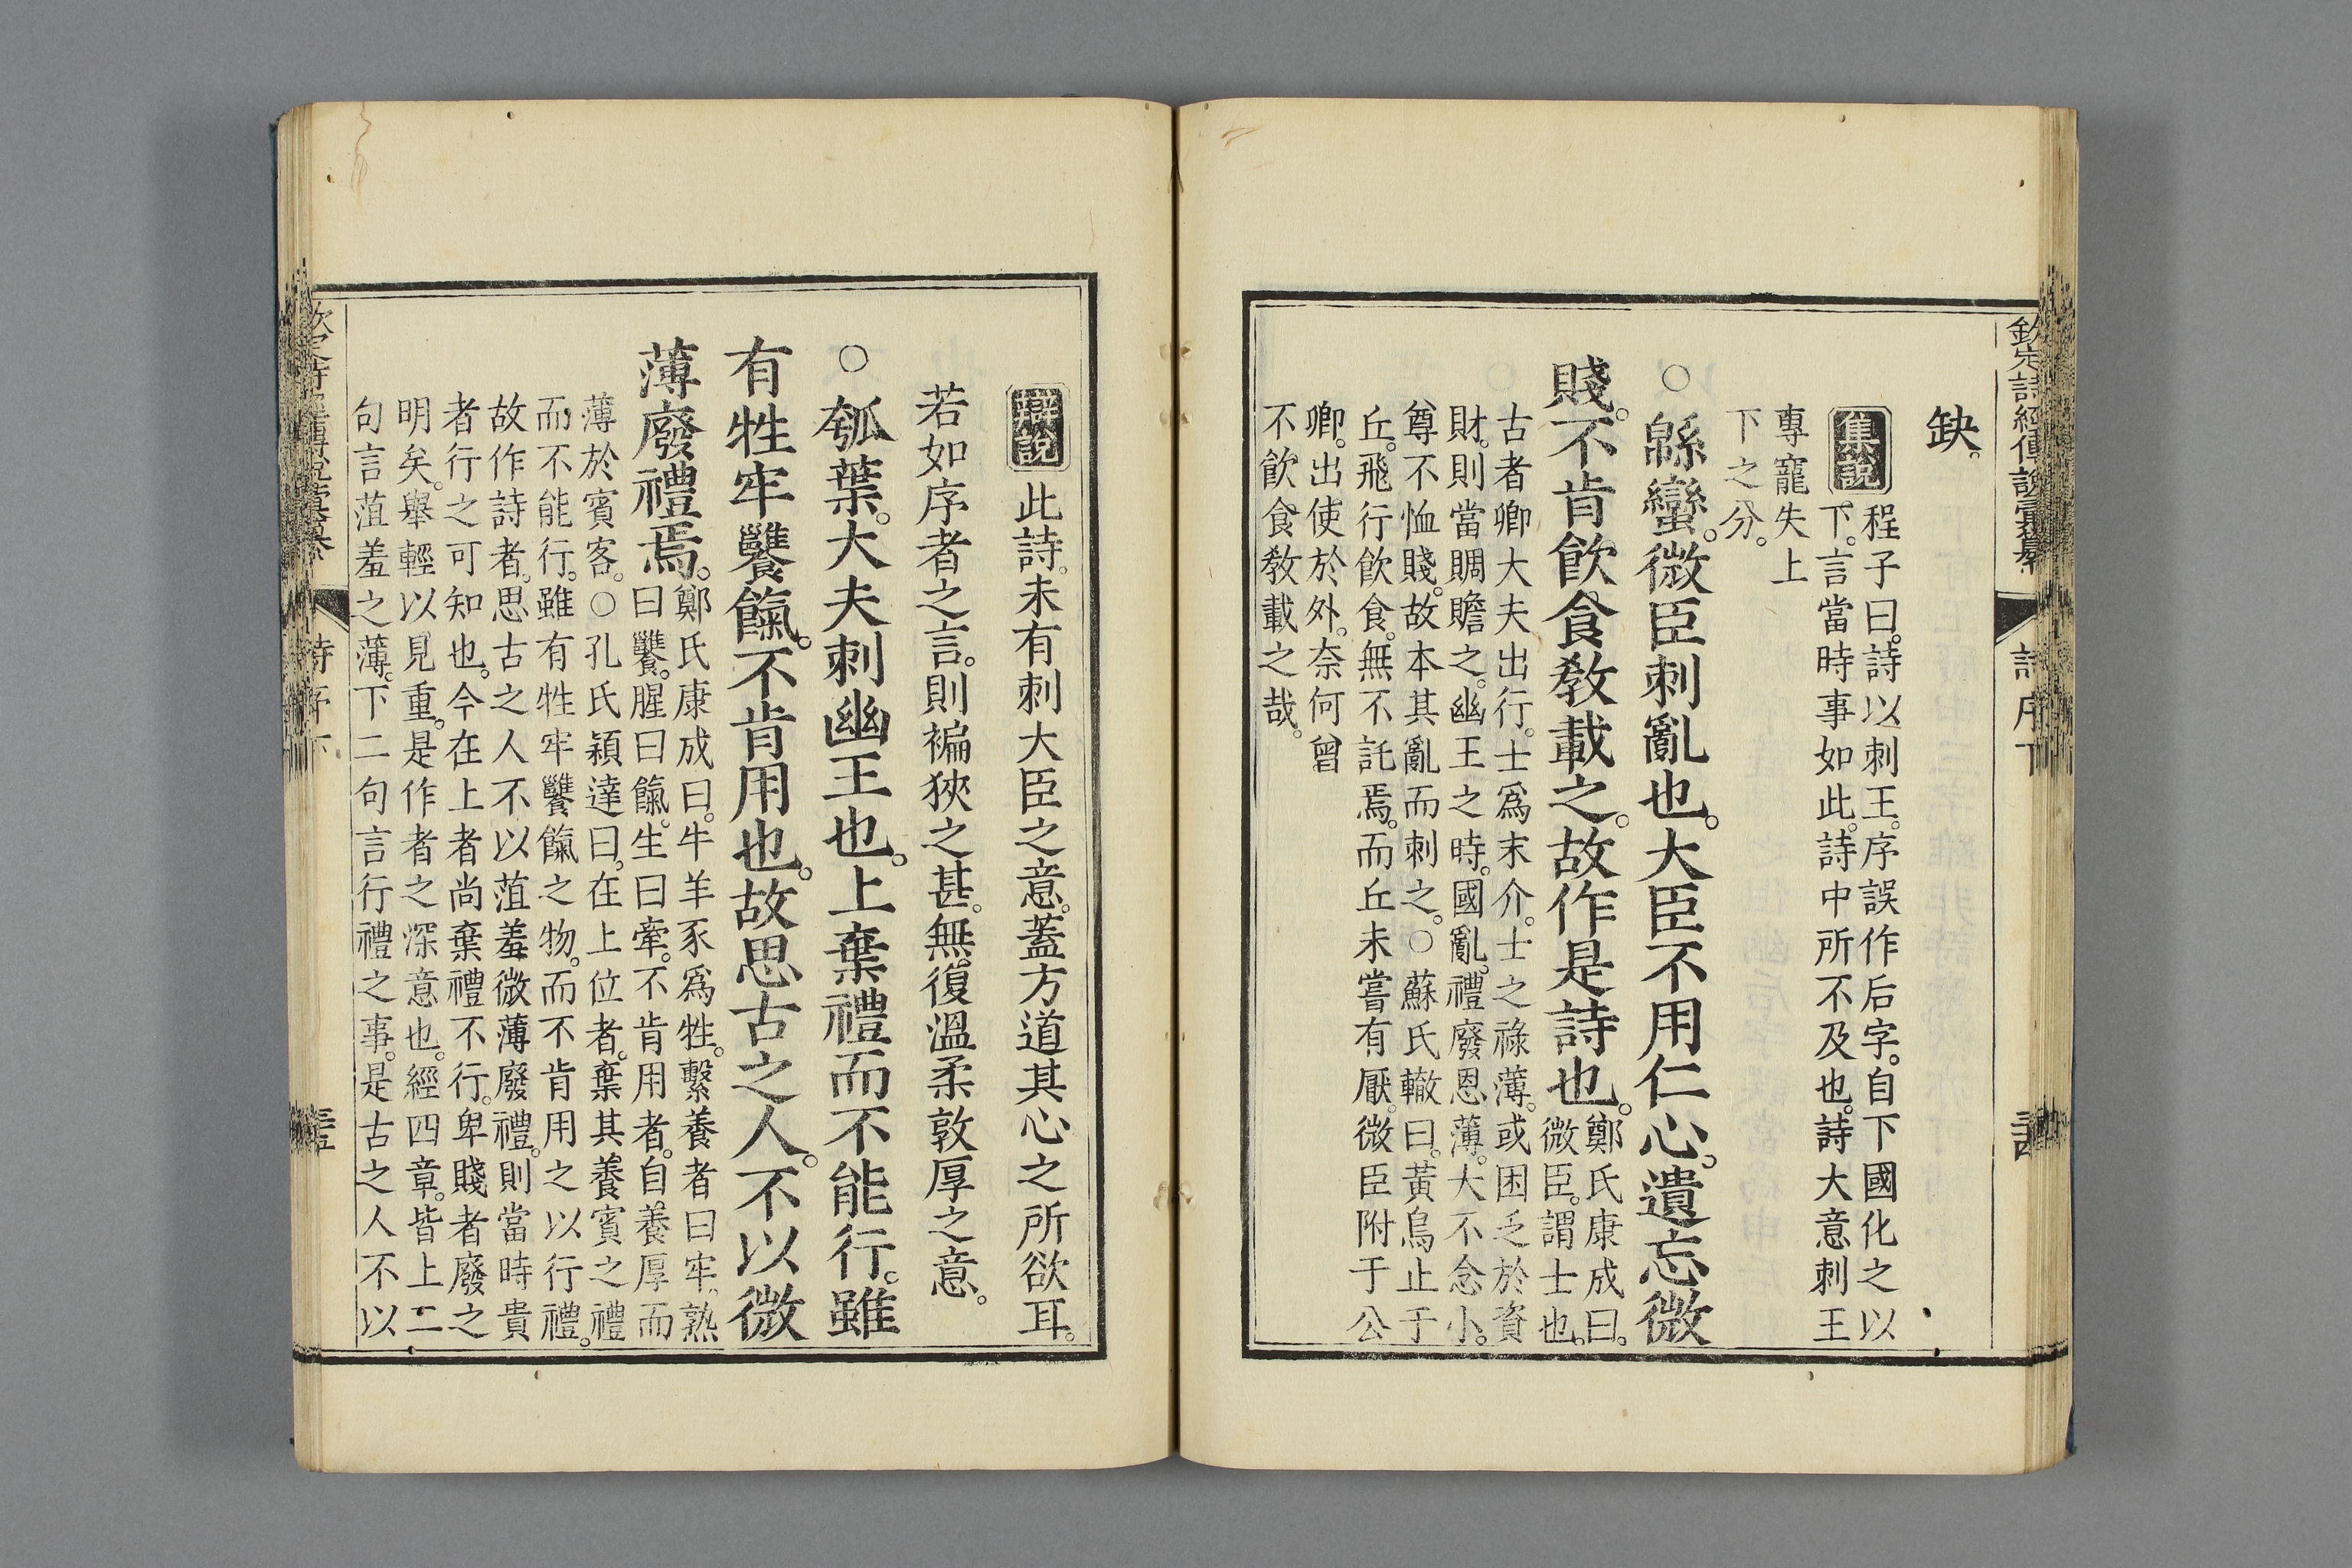 欽定詩經傳說彙纂
詩序下
三十四
缺。
集說
程子曰。詩以刺王。序誤作后字。自下國化之以
下。言當時事如此。詩中所不及也。詩大意刺王
專寵失上
下之分。
○緜蠻。微臣刺亂也。大臣不用仁心。遺忘微
賤。不肯飮食敎載之。故作是詩也。
鄭氏康成曰。
微臣。謂士也。
古者卿大夫出行。士爲末介。士之祿薄。或困乏於資
財。則當賙贍之。幽王之時。國亂。禮廢恩薄。大不念小。
尊不恤賤。故本其亂而刺之。○蘇氏轍曰。黃鳥止于
丘。飛行飮食。無不託焉。而丘未嘗有厭。微臣附于公
卿。出使於外。奈何曾
不飮食敎載之哉。
辯說
此詩。未有刺大臣之意。蓋方道其心之所欲耳。
若如序者之言。則褊狹之甚。無復溫柔敦厚之意。
○瓠葉。大夫刺幽王也。上棄禮而不能行。雖
有牲牢饔餼。不肯用也。故思古之人。不以微
薄廢禮焉。
鄭氏康成曰。牛羊豕爲牲。繫養者曰牢。熟
曰饔。腥曰餼。生曰牽。不肯用者。自養厚而
薄於賓客。○孔氏穎達曰。在上位者。棄其養賓之禮
而不能行。雖有牲牢饔餼之物。而不肯用之以行禮。
故作詩者。思古之人不以菹羞微薄廢禮。則當時貴
者行之可知也。今在上者尚棄禮不行。卑賤者廢之
明矣。舉輕以見重。是作者之深意也。經四章。皆上二
句言菹羞之薄。下二句言行禮之事。是古之人不以
詩序下
三十五